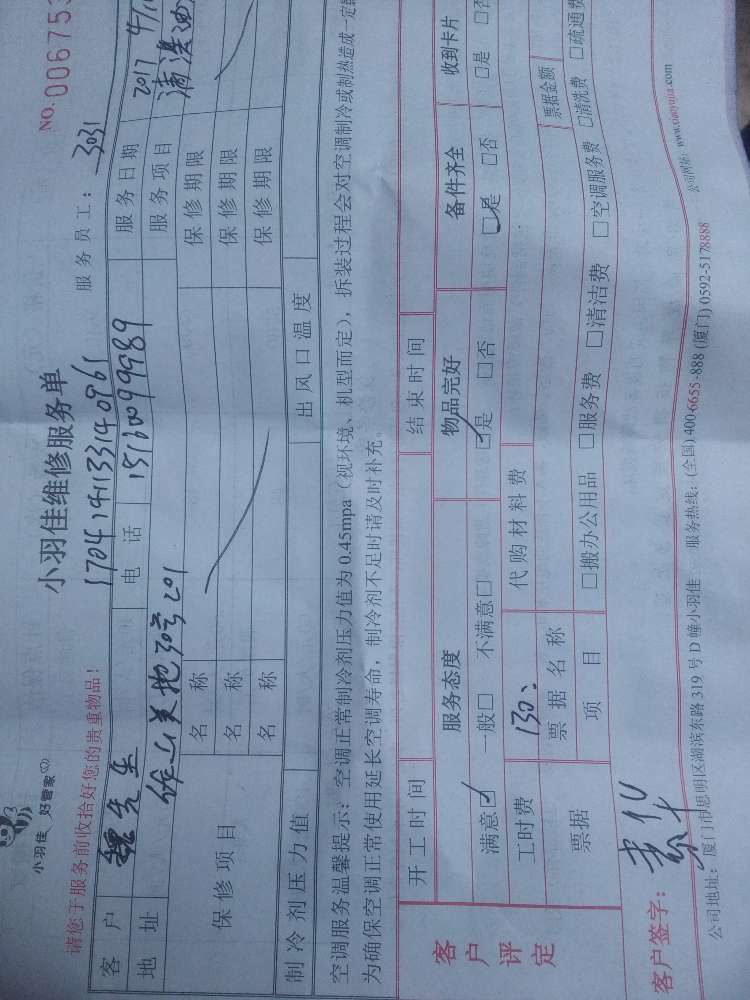 小羽佳 好管家
小羽佳维修服务单
NO.006753
请您于服务前收拾好您的贵重物品!
17041411331 40961
服务员工: 3031
客户 魏先生 电话 15160099989 服务日期 2017 4/1
地址 30号201 服务项目 清洗油
保修项目 名称 保修期限
名称 保修期限
名称 保修期限
制冷剂压力值 出风口温度
空调服务温馨提示: 空调正常制冷剂压力值为 0.45mpa (视环境、机型而定), 拆装过程会对空调制冷或制热造成一定
为确保空调正常使用延长空调寿命, 制冷剂不足时请及时补充。
客户评定 开工时间 结束时间
服务态度 物品完好 备件齐全 收到卡片
满意☑ 一般□ 不满意□ ☑是 □否 ☑是 □否 □是 □否
工时费 130、 代购材料费
票据 票据名称 票据金额
项目 □搬办公用品 □服务费 □清洁费 □空调服务费 □清洗费 □疏通费
客户签字:
公司地址: 厦门市思明区湖滨东路 319 号 D 幢小羽佳 服务热线: (全国) 400-6655-888 (厦门) 0592-5178888 公司网址: www.xiaoyujia.com